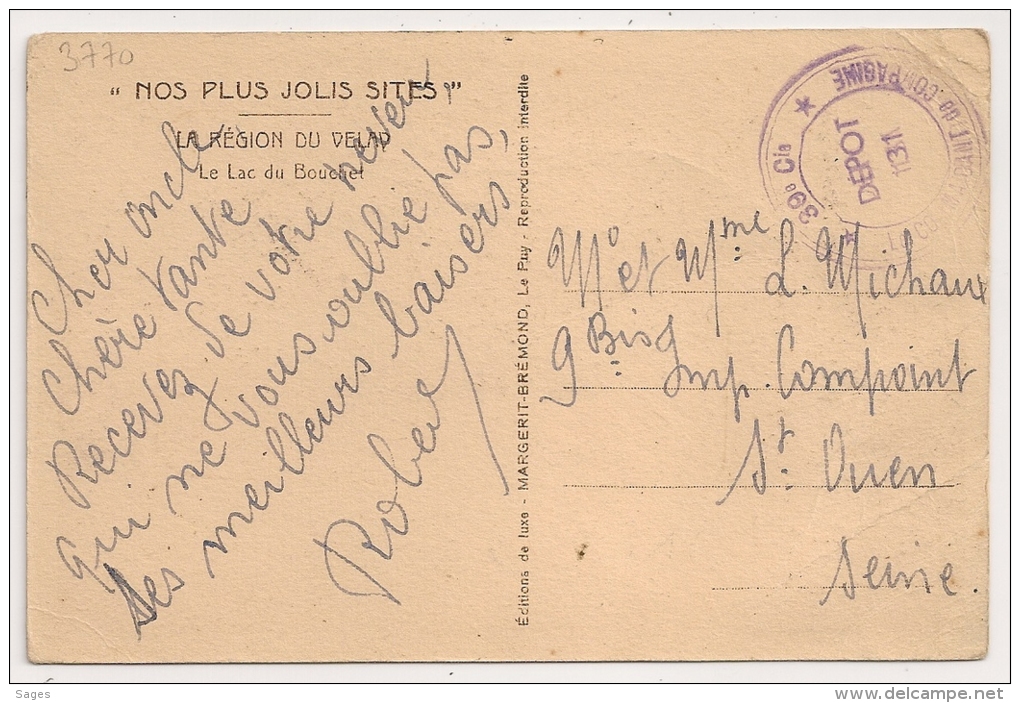 3770
" NOS PLUS JOLIS SITES "
LA RÉGION DU VELAY
Le Lac du Bouchet
Cher oncle
Chère Tante
Recevez de votre neveu
qui ne vous oublie pas,
Ses meilleurs baisers
Robert
Éditions de luxe - MARGERIT-BRÉMOND, Le Puy - Reproduction interdite
39e Cie
COMPAGNIE
DÉPOT
1131
Mr et Mme L. Michaux
9 Bis Imp. Compoint
St. Ouen
Seine.
Sages
delcampe.net